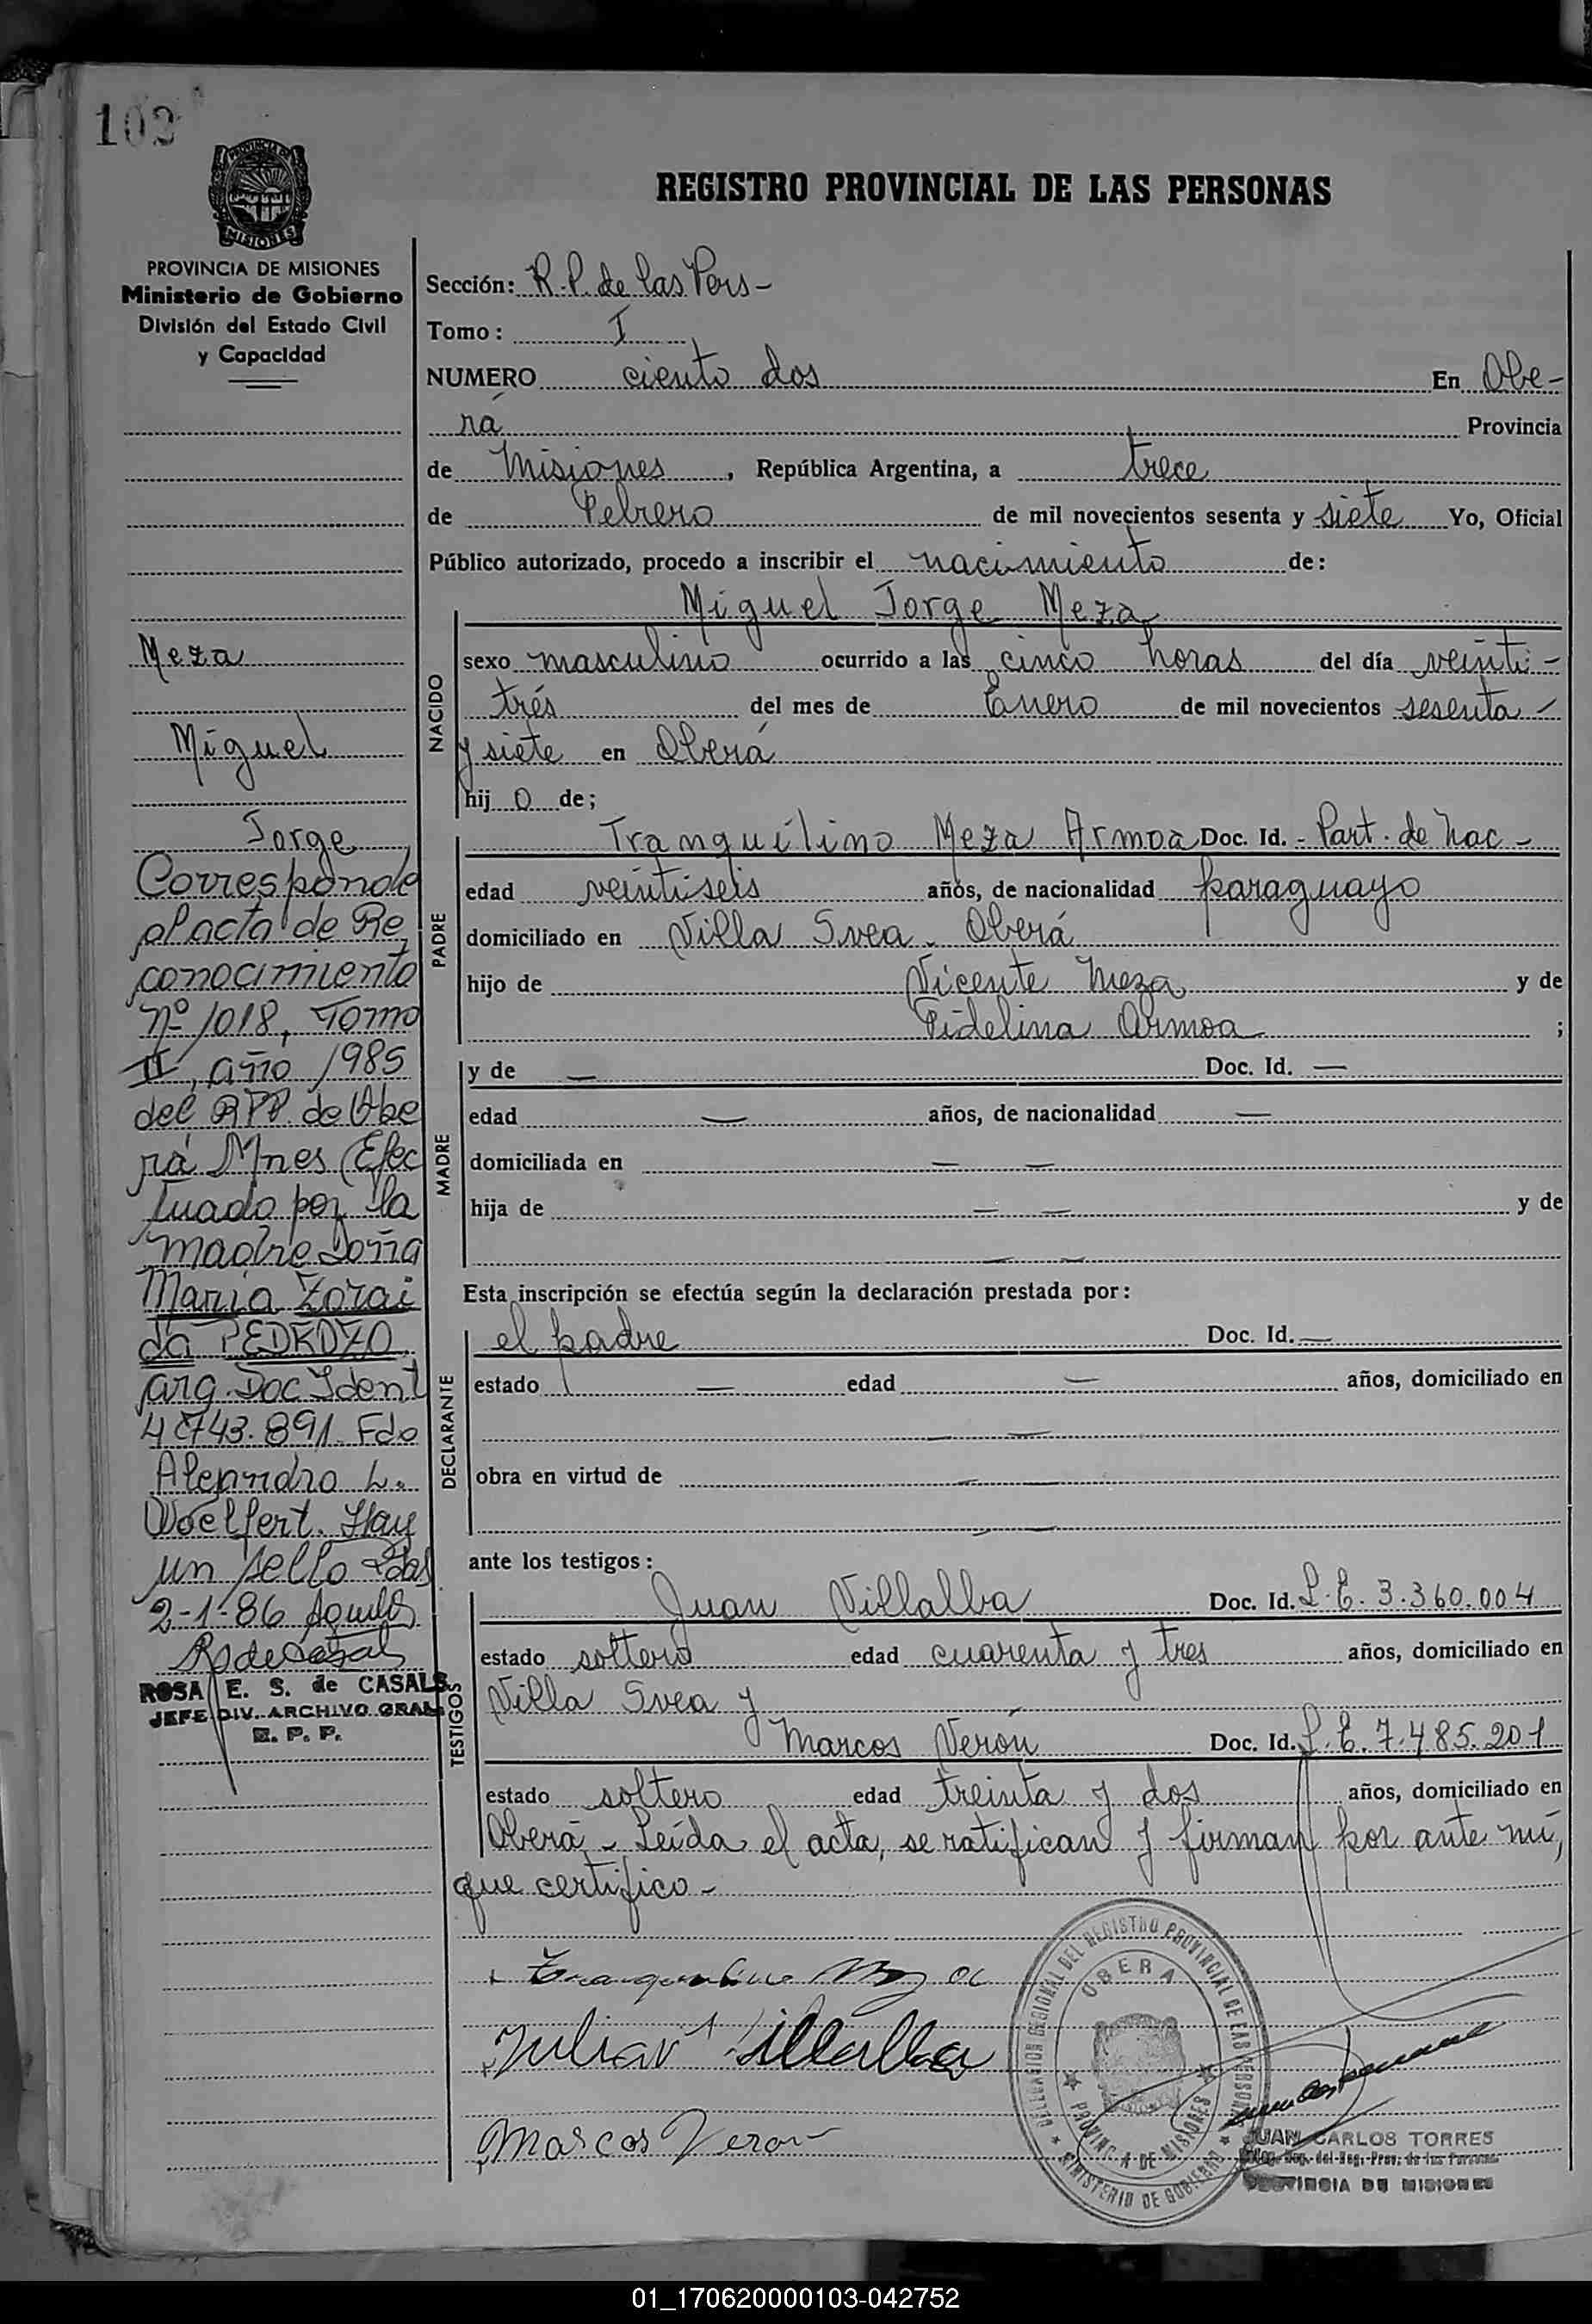 102
REGISTRO PROVINCIAL DE LAS PERSONAS
PROVINCIA DE MISIONES
Ministerio de Gobierno
División del Estado Civil
y Capacidad
Meza
Miguel
Jorge
Corresponde
al acta de Re
conocimiento
Nº 1018, Tomo
II, año 1985
del RPP. de Obe
rá Mnes (Efec
tuado por la
madre Doña
Maria Zorai
da PEDROZO
arg. Doc Ident
4743.891. Fdo
Alejandro L.
Woelfert. Hay
un sello
2-1-86
ROSA E. S. de CASALS
JEFE DIV. ARCHIVO GRAL
R. P. P.
Sección: R.P. de las Pers-
Tomo: I
NUMERO ciento dos En Obe-
rá Provincia
de Misiones, República Argentina, a trece
de Febrero de mil novecientos sesenta y siete Yo, Oficial
Público autorizado, procedo a inscribir el nacimiento de:
NACIDO
Miguel Jorge Meza
sexo masculino ocurrido a las cinco horas del día veinti-
trés del mes de Enero de mil novecientos sesenta
y siete en Oberá
hij o de;
PADRE
Tranquilino Meza Armoa Doc. Id. - Part. de Nac -
edad veintiseis años, de nacionalidad paraguayo
domiciliado en Villa Svea - Oberá
hijo de Vicente Meza y de
Fidelina Armoa ;
MADRE
y de — Doc. Id. —
edad — años, de nacionalidad —
domiciliada en — —
hija de — — y de
— —
Esta inscripción se efectúa según la declaración prestada por:
DECLARANTE
el padre Doc. Id. —
estado — edad — años, domiciliado en
— —
obra en virtud de — —
— —
ante los testigos:
TESTIGOS
Juan Villalba Doc. Id. L.E. 3.360.004
estado soltero edad cuarenta y tres años, domiciliado en
Villa Svea y
Marcos Verón Doc. Id. L.E. 7.485.201
estado soltero edad treinta y dos años, domiciliado en
Oberá - Leída el acta, se ratifican y firman por ante mí,
que certifico -
Tranquilino Meza
Julian Villalba
Marcos Veron
DELEGACION REGIONAL DEL REGISTRO PROVINCIAL DE LAS PERSONAS
OBERA
PROVINCIA DE MISIONES
MINISTERIO DE GOBIERNO
JUAN CARLOS TORRES
Reg. del Reg. Prov. de las Personas
PROVINCIA DE MISIONES
01_170620000103-042752